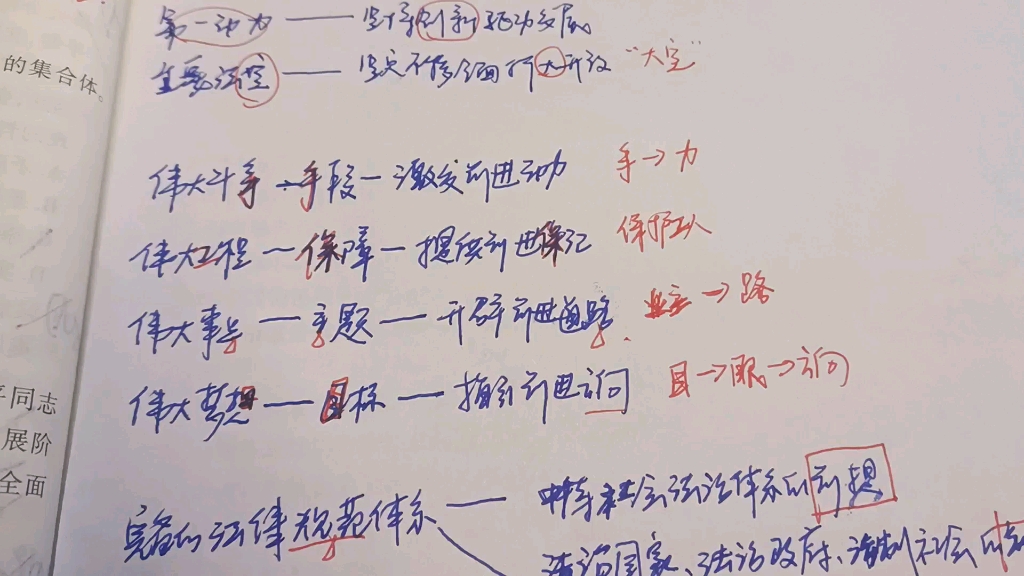 的集合体。
第一动力 —— 坚持创新驱动发展
主要法宝 —— 坚定不移全面扩大开放 "大宝"
伟大斗争 — 手段 — 激发前进动力 手→力
伟大工程 — 保障 — 提供前进保证 保护工队
伟大事业 — 主题 — 开辟前进道路 业主→路
伟大梦想 — 目标 — 指引前进方向 目→眼→方向
平同志
展阶
全面
完备的法律规范体系 —— 中特社会法治体系的前提
法治国家、法治政府、法制社会的